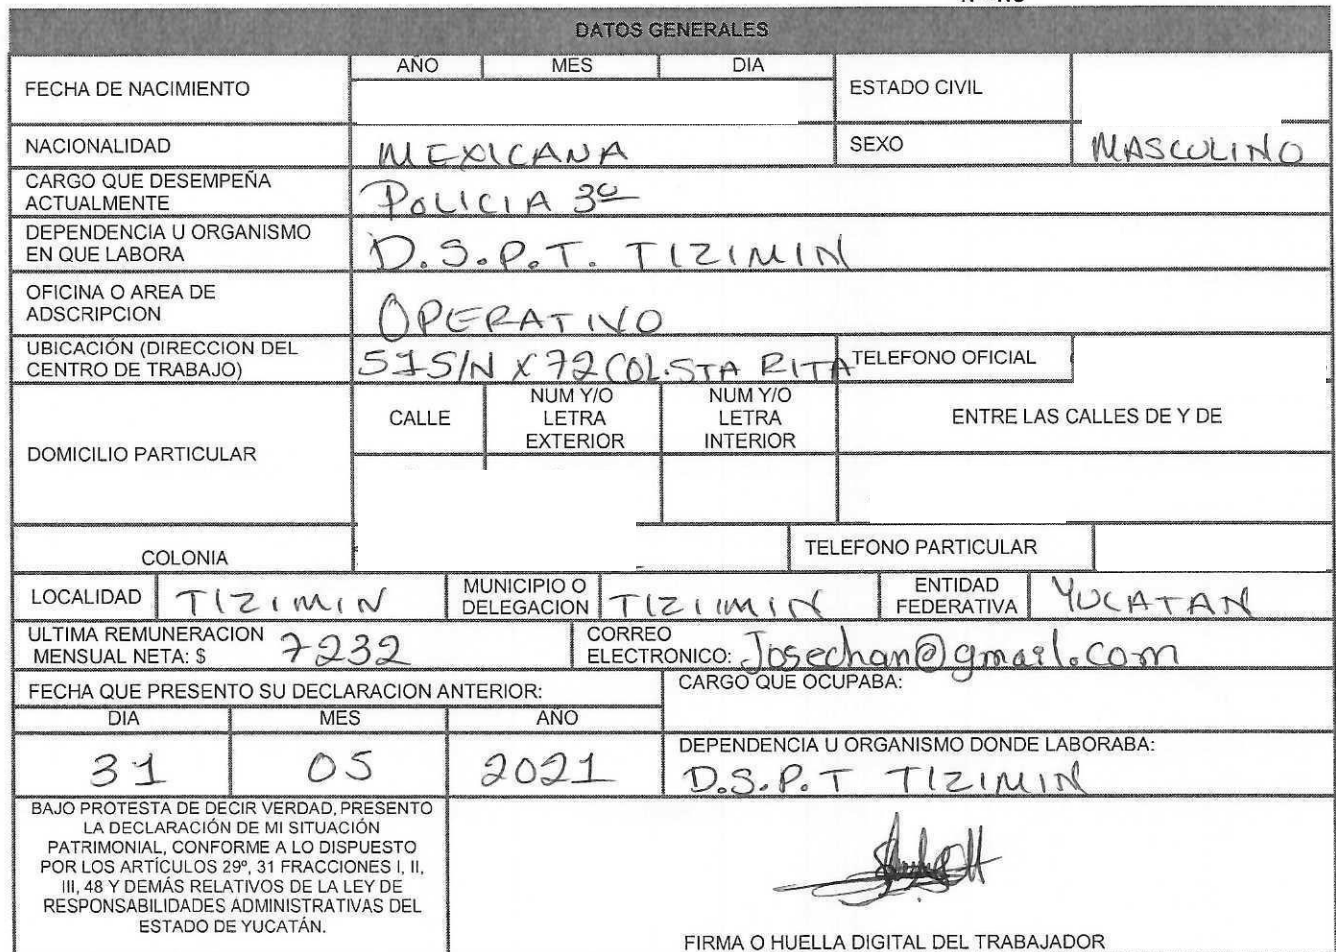 DATOS GENERALES
FECHA DE NACIMIENTO
AÑO MES DIA
ESTADO CIVIL
NACIONALIDAD MEXICANA SEXO MASCULINO
CARGO QUE DESEMPEÑA
ACTUALMENTE
POLICIA 3º
DEPENDENCIA U ORGANISMO
EN QUE LABORA
D.S.P.T. TIZIMIN
OFICINA O AREA DE
ADSCRIPCION
OPERATIVO
UBICACIÓN (DIRECCION DEL
CENTRO DE TRABAJO)
51 S/N X 72 COL. STA RITA
TELEFONO OFICIAL
DOMICILIO PARTICULAR
CALLE
NUM Y/O
LETRA
EXTERIOR
NUM Y/O
LETRA
INTERIOR
ENTRE LAS CALLES DE Y DE
COLONIA
TELEFONO PARTICULAR
LOCALIDAD TIZIMIN
MUNICIPIO O
DELEGACION
TIZIIMIN
ENTIDAD
FEDERATIVA
YUCATAN
ULTIMA REMUNERACION
MENSUAL NETA: $ 7232
CORREO
ELECTRONICO: Josechan@gmail.com
FECHA QUE PRESENTO SU DECLARACION ANTERIOR:
DIA MES AÑO
31 05 2021
CARGO QUE OCUPABA:
DEPENDENCIA U ORGANISMO DONDE LABORABA:
D.S.P.T TIZIMIN
BAJO PROTESTA DE DECIR VERDAD, PRESENTO
LA DECLARACIÓN DE MI SITUACIÓN
PATRIMONIAL, CONFORME A LO DISPUESTO
POR LOS ARTÍCULOS 29º, 31 FRACCIONES I, II,
III, 48 Y DEMÁS RELATIVOS DE LA LEY DE
RESPONSABILIDADES ADMINISTRATIVAS DEL
ESTADO DE YUCATÁN.
FIRMA O HUELLA DIGITAL DEL TRABAJADOR